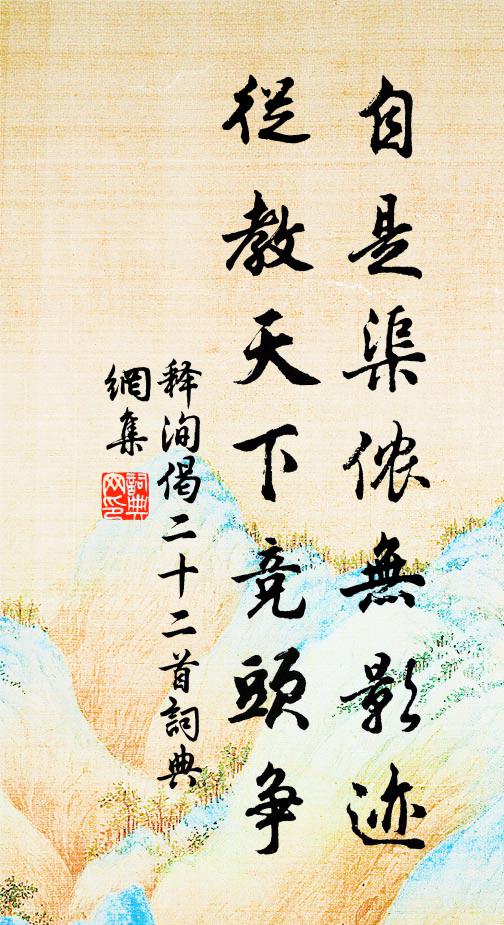 自是渠侬無影迹
從教天下竞頭争
释洵偈二十二首詞典
網集
詞典
网印